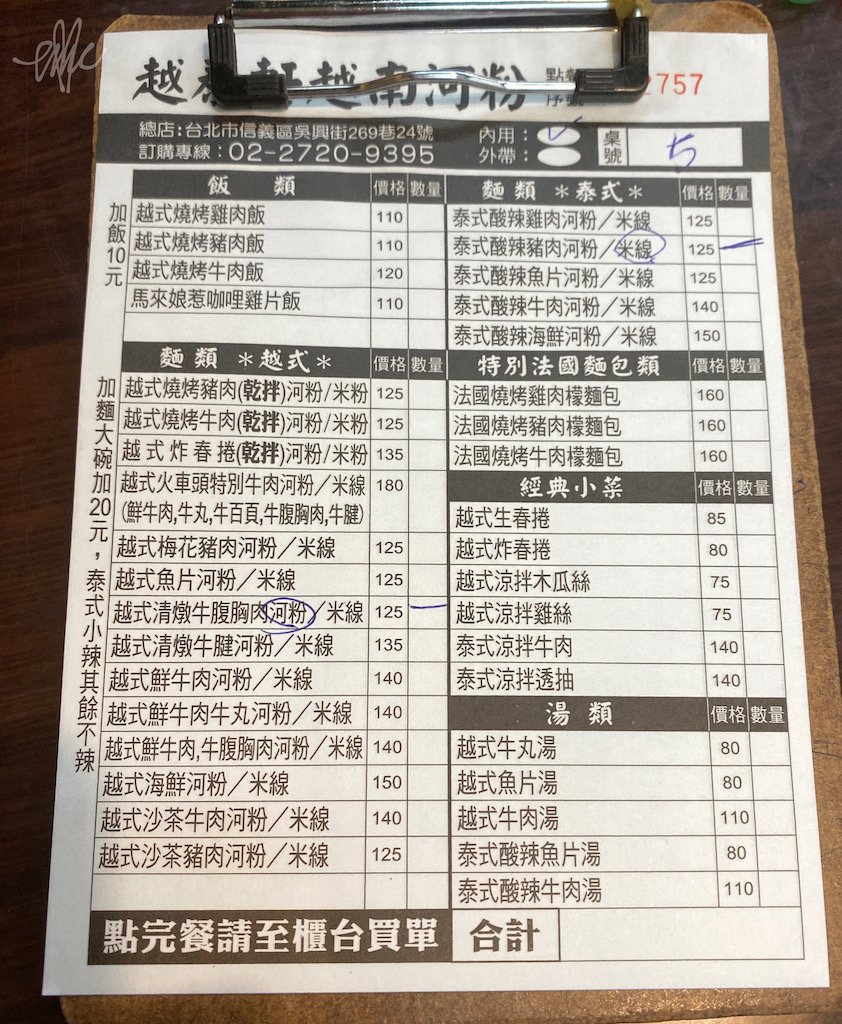 越泰軒越南河粉
點餐序號 2757
總店:台北市信義區吳興街269巷24號
訂購專線:02-2720-9395
內用: ✓
外帶:
桌號 5
加飯10元
飯類 價格 數量
越式燒烤雞肉飯 110
越式燒烤豬肉飯 110
越式燒烤牛肉飯 120
馬來娘惹咖哩雞片飯 110
加麵大碗加20元,泰式小辣其餘不辣
麵類 *越式* 價格 數量
越式燒烤豬肉(乾拌)河粉/米粉 125
越式燒烤牛肉(乾拌)河粉/米粉 125
越式炸春捲(乾拌)河粉/米粉 135
越式火車頭特別牛肉河粉/米線 180
(鮮牛肉,牛丸,牛百頁,牛腹胸肉,牛腱)
越式梅花豬肉河粉/米線 125
越式魚片河粉/米線 125
越式清燉牛腹胸肉河粉/米線 125 一
越式清燉牛腱河粉/米線 135
越式鮮牛肉河粉/米線 140
越式鮮牛肉牛丸河粉/米線 140
越式鮮牛肉,牛腹胸肉河粉/米線 140
越式海鮮河粉/米線 150
越式沙茶牛肉河粉/米線 140
越式沙茶豬肉河粉/米線 125
麵類 *泰式* 價格 數量
泰式酸辣雞肉河粉/米線 125
泰式酸辣豬肉河粉/米線 125 一
泰式酸辣魚片河粉/米線 125
泰式酸辣牛肉河粉/米線 140
泰式酸辣海鮮河粉/米線 150
特別法國麵包類 價格 數量
法國燒烤雞肉檬麵包 160
法國燒烤豬肉檬麵包 160
法國燒烤牛肉檬麵包 160
經典小菜 價格 數量
越式生春捲 85
越式炸春捲 80
越式涼拌木瓜絲 75
越式涼拌雞絲 75
泰式涼拌牛肉 140
泰式涼拌透抽 140
湯類 價格 數量
越式牛丸湯 80
越式魚片湯 80
越式牛肉湯 110
泰式酸辣魚片湯 80
泰式酸辣牛肉湯 110
點完餐請至櫃台買單
合計